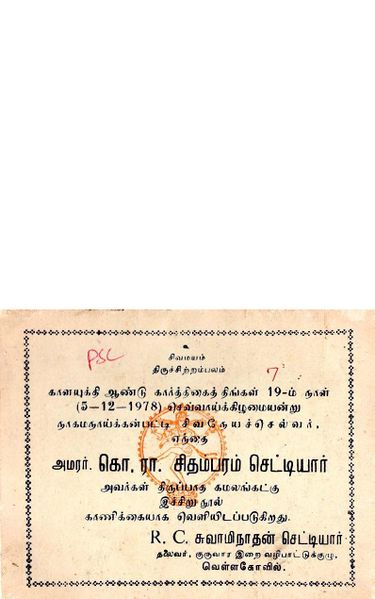 சிவமயம்
PSC
திருச்சிற்றம்பலம்
7
காளயுக்தி ஆண்டு கார்த்திகைத் திங்கள் 19-ம் நாள்
(5-12-1978) செவ்வாய்க்கிழமையன்று
நாகமநாய்க்கன்பட்டி சிவநேயச்செல்வர்,
எந்தை
அமரர். கொ. ரா. சிதம்பரம் செட்டியார்
அவர்கள் திருப்பாத கமலங்கட்கு
இச்சிறு நூல்
காணிக்கையாக வெளியிடப்படுகிறது.
R. C. சுவாமிநாதன் செட்டியார்
தலைவர், குருவார இறை வழிபாட்டுக்குழு,
வெள்ளகோவில்.